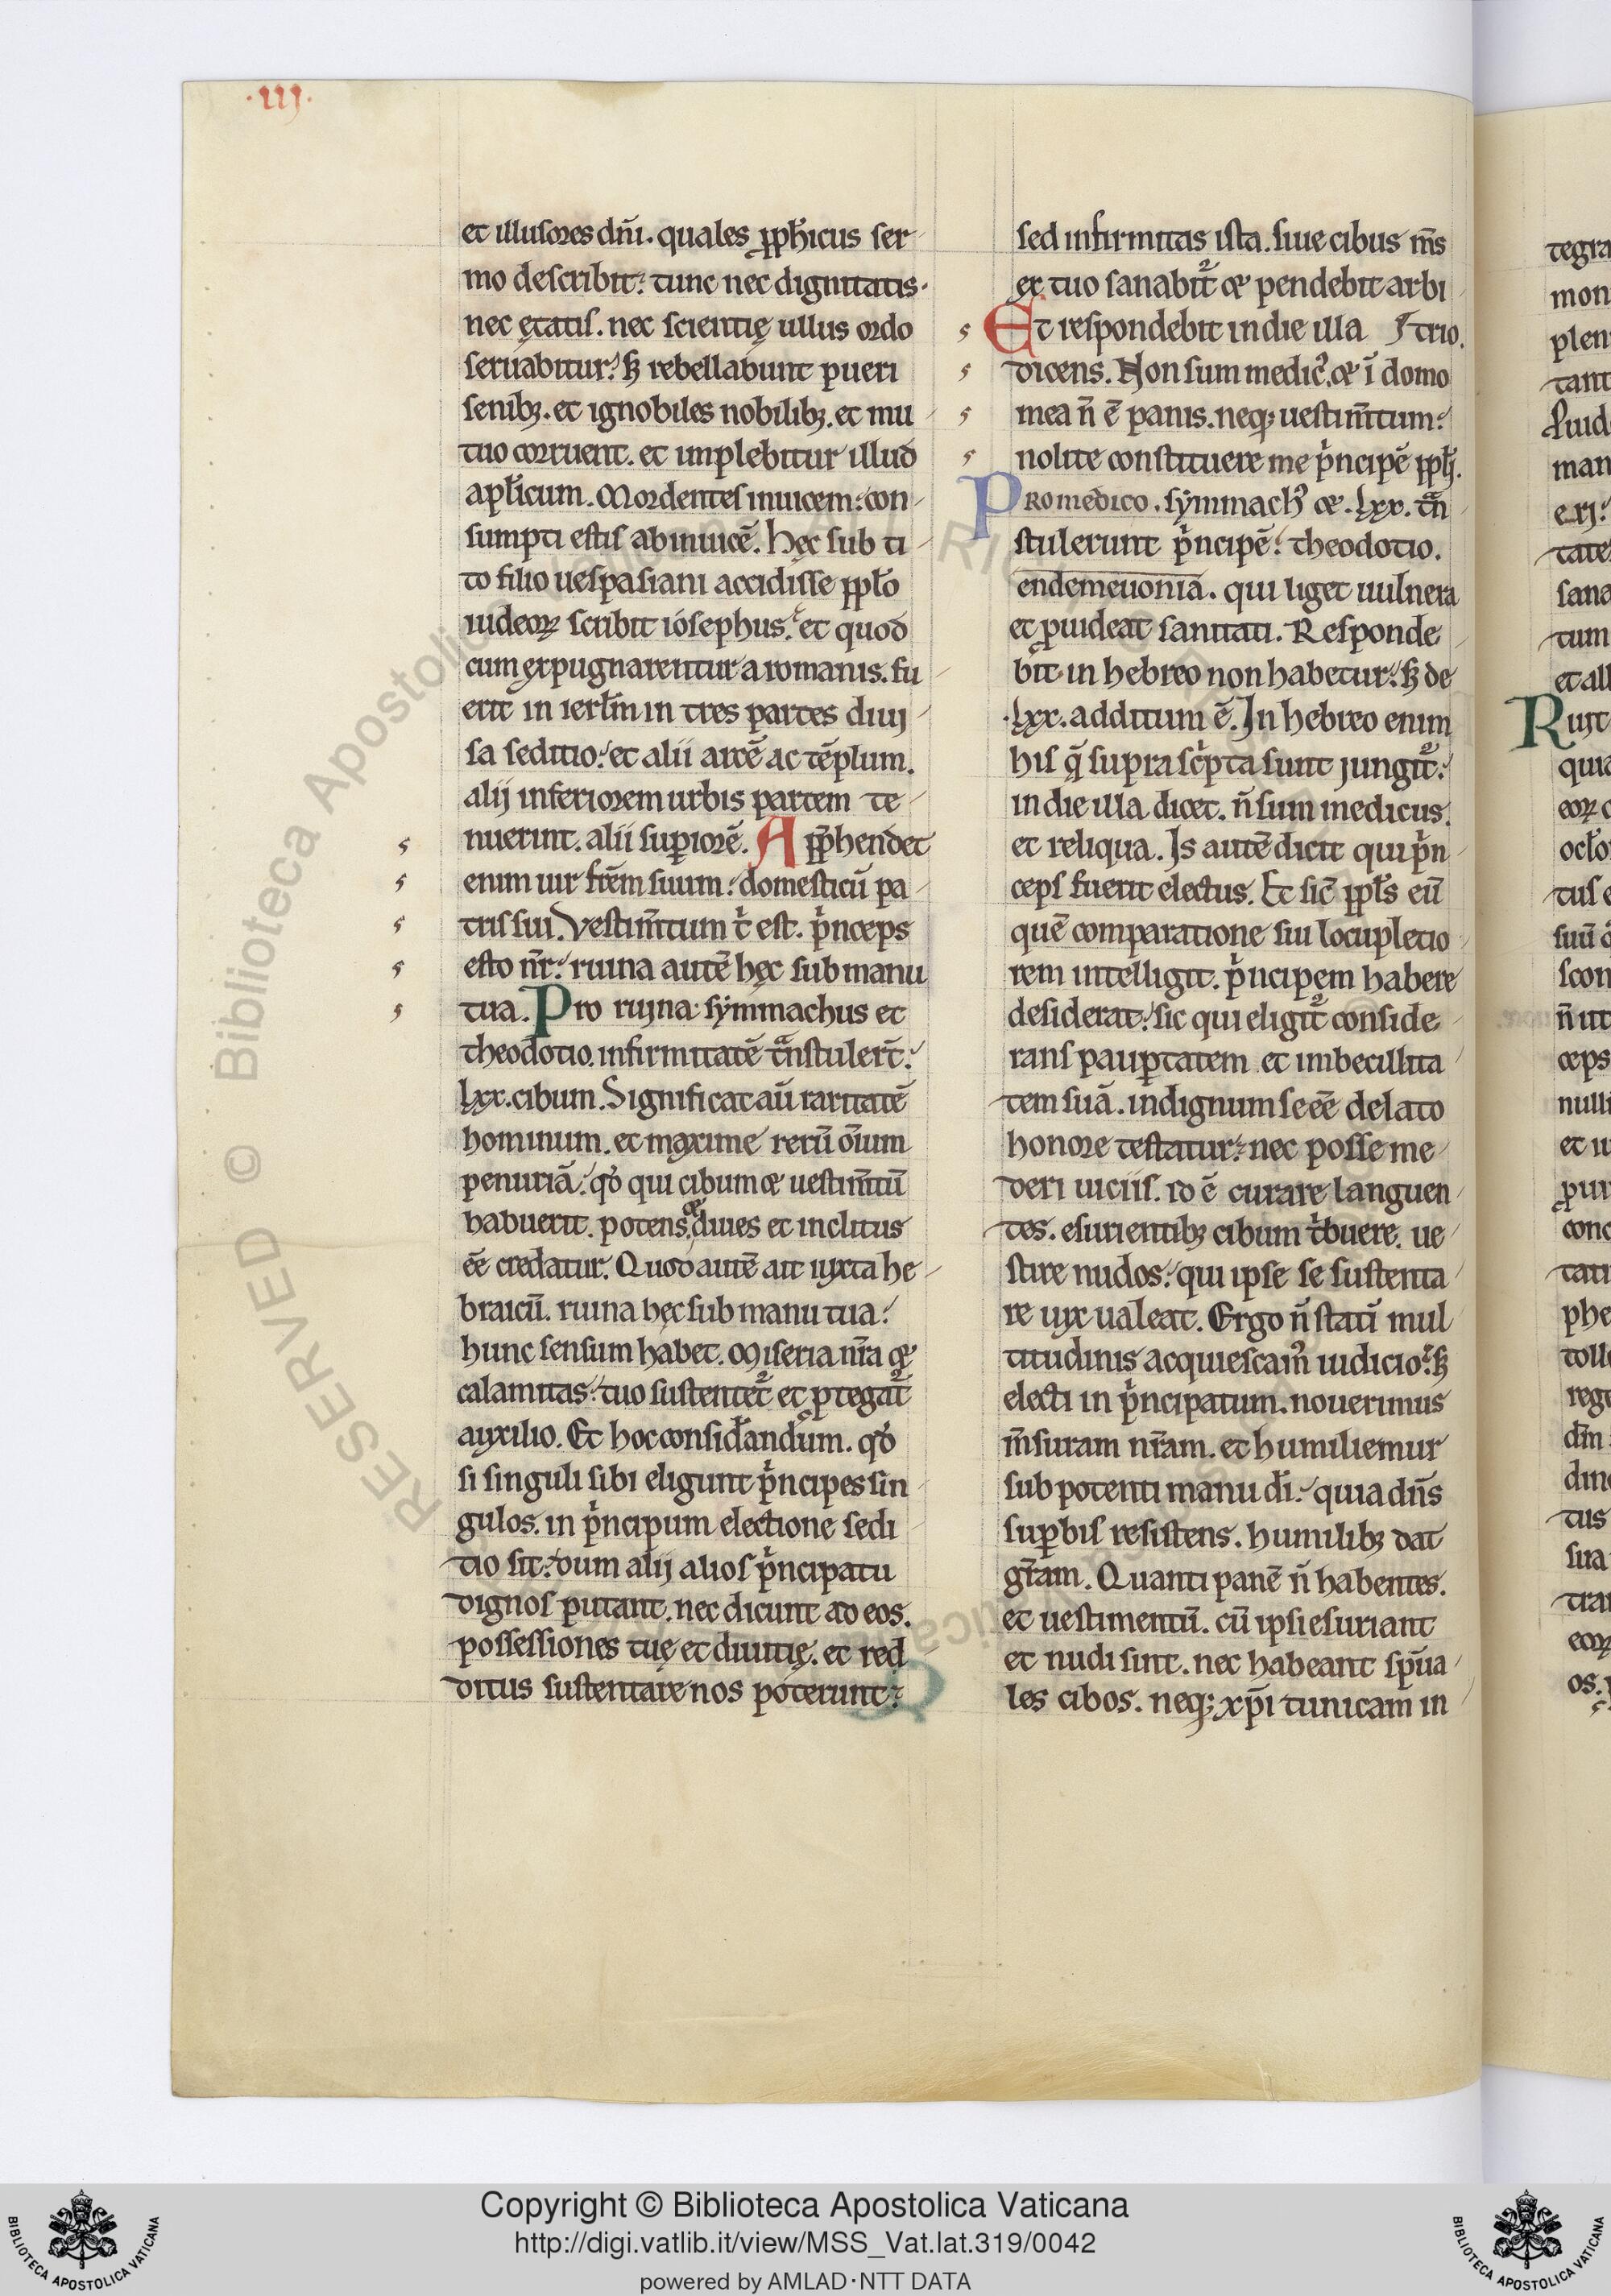 ·III·
et illusores dn̄i. quales ꝓph̄icus ser
mo describit: tunc nec dignitatis.
nec ętatis. nec scientię ullus ordo
seruabitur: sꝫ rebellabunt pueri
senibꝫ. et ignobiles nobilibꝫ. et mu
tuo corruent. et implebitur illud
apl̄icum. Mordentes inuicem: con
sumpti estis ab inuicē. Hęc sub ti
to filio uespasiani accidisse ppl̄o
iudeoꝝ scribit iósephus: et quod
cum expugnarentur a romanis. fu
erit in ierl̄m in tres partes diuj
sa seditio: et alii arcē ac tēplum.
alij inferiorem urbis partem te
nuerint. alii supiorē. Apph̄endet
enim uir fr̄em suum: domesticū pa
tris sui. Vestim̄tum t̓ est. p̓nceps
esto nr̄: ruina autē hęc sub manu
tua. Pro rujna: sẏmmachus et
theodotio. infirmitatē tᷓnstuler̄t:
lxx. cibum. Significat aū raritatē
hominum. et maxime rerū om̄ium
penuriā: qd̓ qui cibum &amp; uestim̄tū
habuerit. potens &amp; diues et inclitus
eē credatur. Quod autē ait iuxta he
braicū. ruina hęc sub manu tua:
hunc sensum habet. Miseria nr̄a &amp;
calamitas: tuo sustentet᷑ et ꝓtegat᷑
auxilio. Et hoc considandum. qd̓
si singuli sibi eligunt p̓ncipes sin
gulos. in p̓ncipum electione sedi
tio sit: dum alij alios p̓ncipatu
dignos putant. nec dicunt ad eos.
possessiones tuę et diuitię. et red
ditus sustentare nos poterunt:
sed infirmitas ista. siue cibus m̄s
ex tuo sanabit᷑ &amp; pendebit arbi
Et respondebit in die illa trio.
dicens. Non sum medic᷒. &amp; ī domo
mea n̄ ē panis. neqꝫ uestim̄tum:
nolite constituere me p̓ncipē ppl̄j.
PRo medico. sẏmmach᷒ &amp; .lxx. tᷓn
stulerunt p̓ncipē: theodotio.
endemeuonia. qui liget uulnera
et ꝓuideat sanitati. Responde
bit in hebreo non habetur: sꝫ de
.lxx. additum ē. In hebreo enim
his q̄ supra sc̓pta sunt jungit᷑:
in die illa dicet. n̄ sum medicus.
et reliqua. Is autē dicit qui p̓n
ceps fuerit electus. Et sic̄ ppl̄s eū
quē comparatione sui locupletio
rem intelligit. p̓ncipem habere
desiderat: sic qui eligit᷑ conside
rans paupertatem et imbecillita
tem suā. indignum se eē delato
honore testatur: nec posse me
deri uiciis. id ē curare languen
tes. esurientibꝫ cibum t̓buere. ue
stire nudos: qui ipse se sustenta
re uix ualeat. Ergo n̄ statī mul
titudinis acquiescam᷒ iudicio: sꝫ
electi in p̓ncipatum. nouerimus
m̄suram nr̄am. et humiliemur
sub potenti manu dī: quia dn̄s
supbis resistens. humilibꝫ dat
gr̄am. Quanti panē n̄ habentes.
et uestimentū. cū ipsi esuriant
et nudi sint. nec habeant sp̄ua
les cibos. neqꝫ xp̄i tunicam in
Copyright © Biblioteca Apostolica Vaticana
http://digi.vatlib.it/view/MSS_Vat.lat.319/0042
powered by AMLAD·NTT DATA